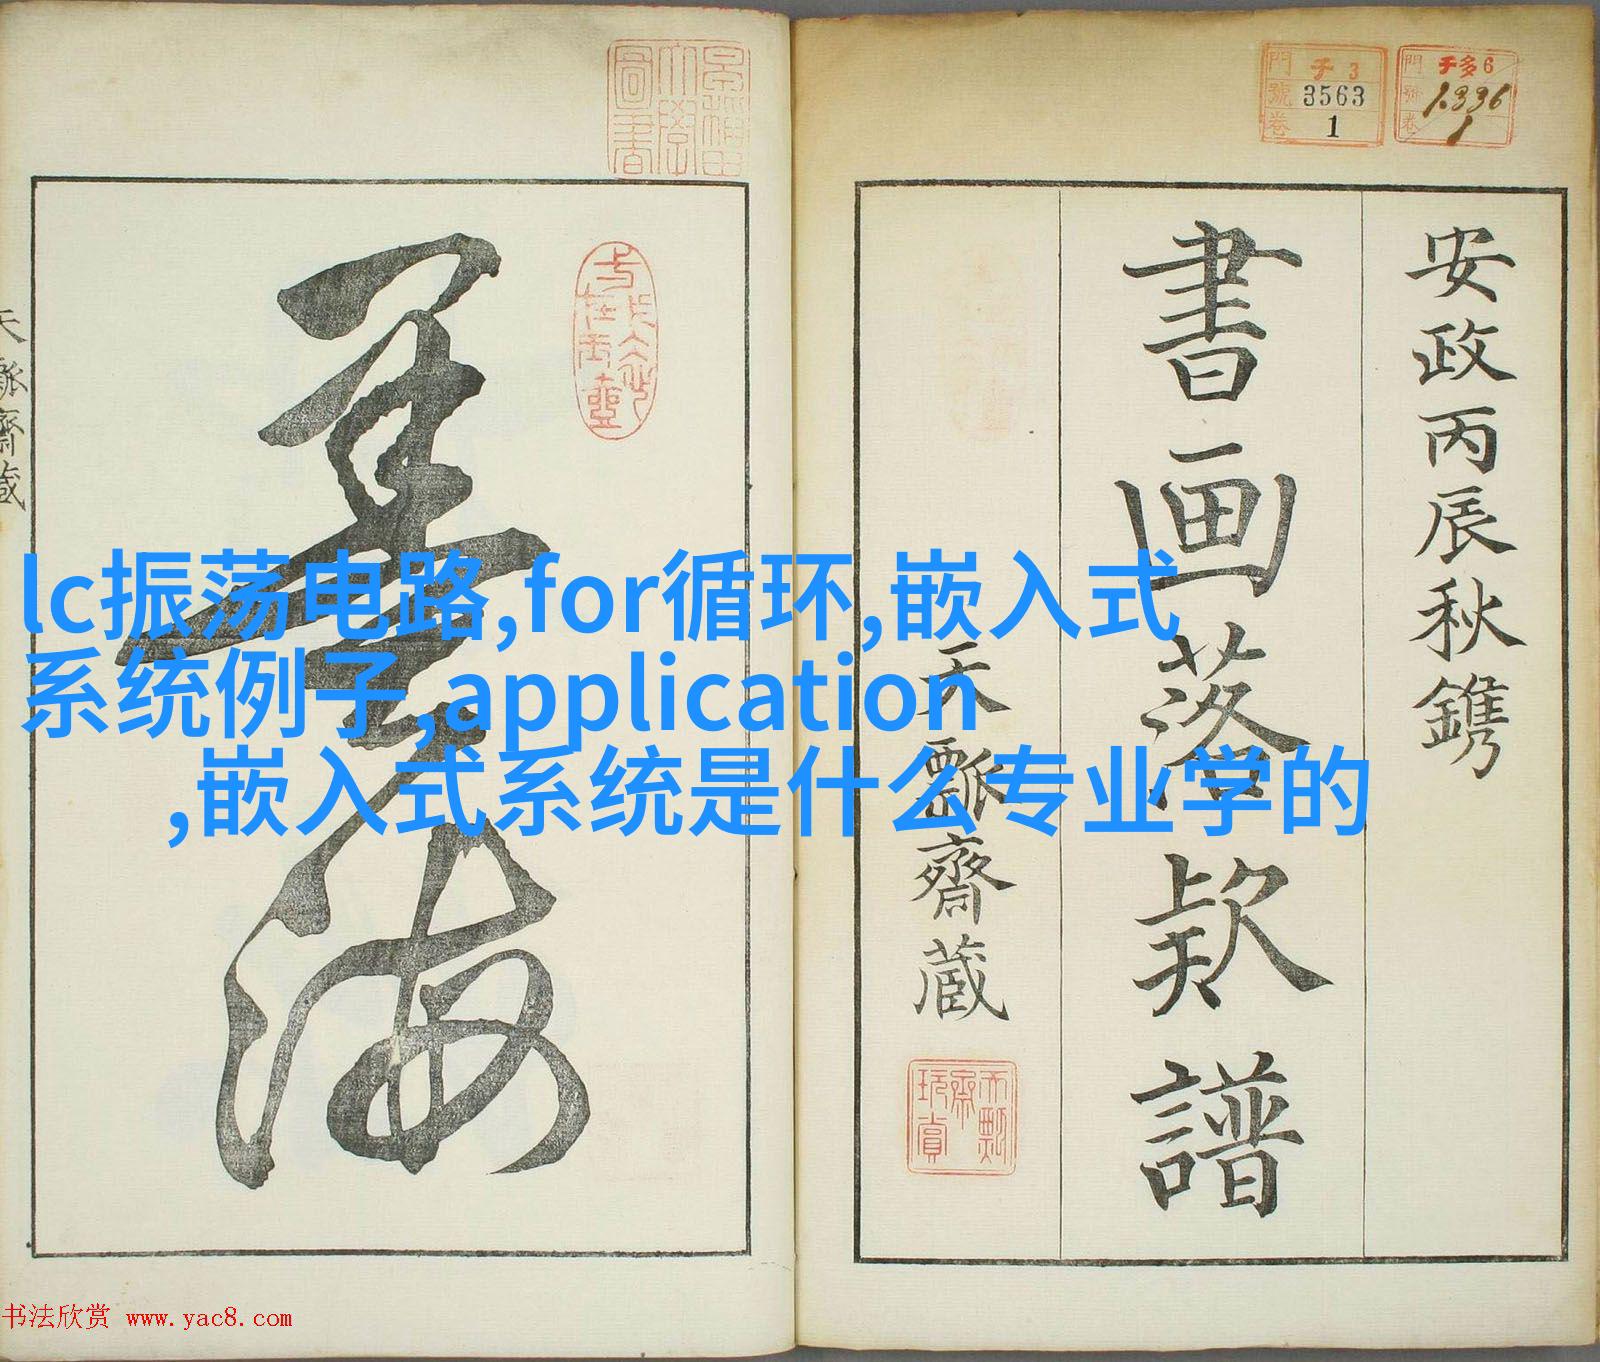 門 チ 3
號 3563
卷 1
門 チ多6
號 1.336
卷 1
安政丙辰秋鐫
書画落款譜
天瓢齋蔵
天瓢齋蔵
lc振荡电路,for循环,嵌入式
系统例子,application
,嵌入式系统是什么专业学的
书法欣赏 www.yac8.com